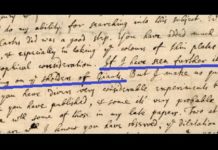 to my ability for searching into this subject.
Cartes did was a good step. You have added much
& especially in taking ye colours of thin plates
ophical consideration. If I have seen further
on ye sholders of Giants. But I make no
you have divers very considerable experiments
you have published, & some it's very probable
some of those in my late papers. Two
I know you have observed, ye dilatation